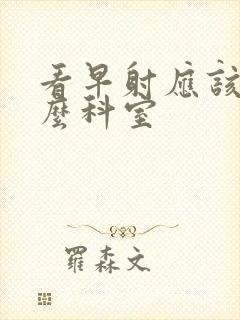 看早射應該
麼科室
羅森文